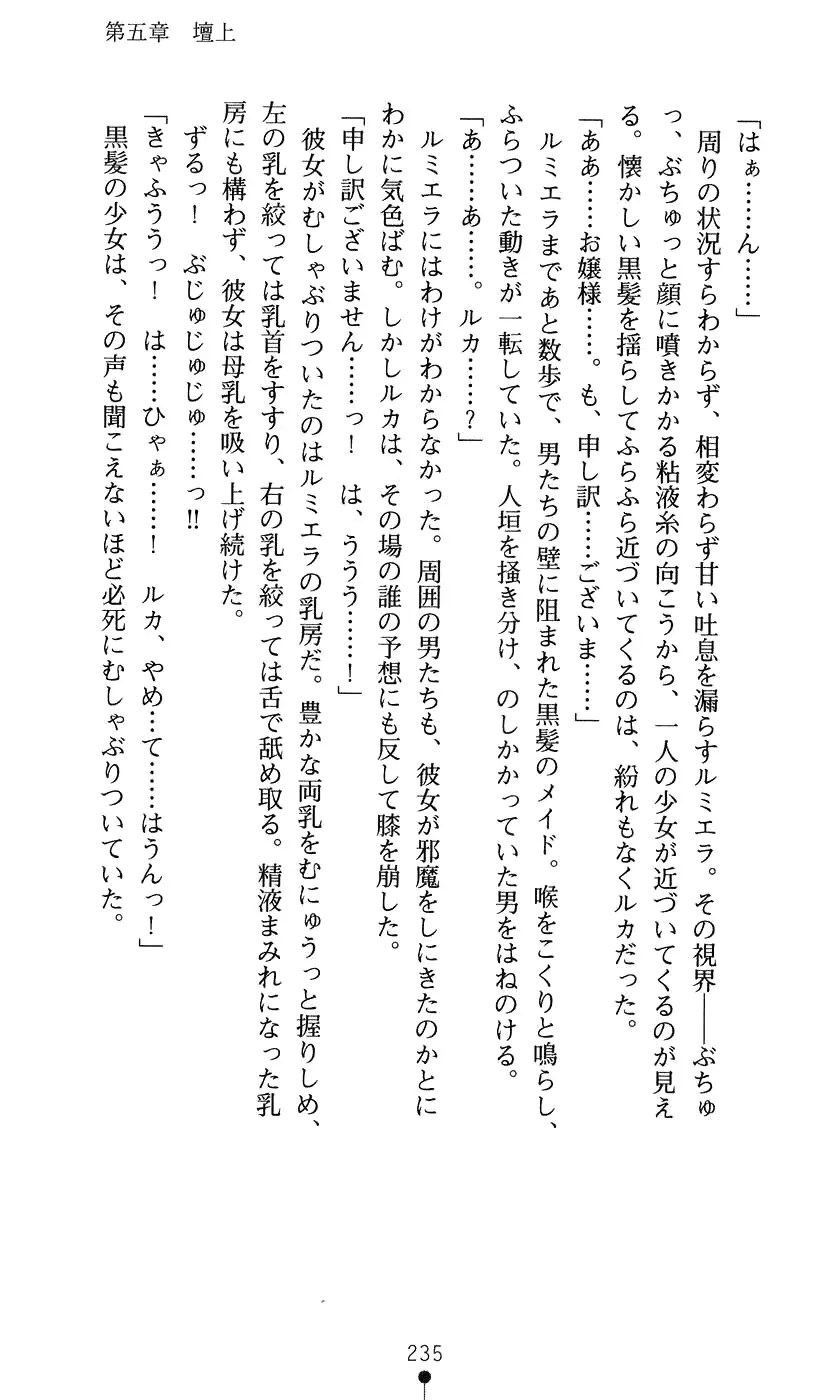 第五章　壇上
「はぁ……ん……」
　周りの状況すらわからず、相変わらず甘い吐息を漏らすルミエラ。その視界――ぶちゅ
っ、ぶちゅっと顔に噴きかかる粘液糸の向こうから、一人の少女が近づいてくるのが見え
る。懐かしい黒髪を揺らしてふらふら近づいてくるのは、紛れもなくルカだった。
「ああ……お嬢様……。も、申し訳……ございま……」
　ルミエラまであと数歩で、男たちの壁に阻まれた黒髪のメイド。喉をこくりと鳴らし、
ふらついた動きが一転していた。人垣を掻き分け、のしかかっていた男をはねのける。
「あ……あ……。ルカ……？」
　ルミエラにはわけがわからなかった。周囲の男たちも、彼女が邪魔をしにきたのかとに
わかに気色ばむ。しかしルカは、その場の誰の予想にも反して膝を崩した。
「申し訳ございません……っ！　は、ううう……！」
　彼女がむしゃぶりついたのはルミエラの乳房だ。豊かな両乳をむにゅうっと握りしめ、
左の乳を絞っては乳首をすすり、右の乳を絞っては舌で舐め取る。精液まみれになった乳
房にも構わず、彼女は母乳を吸い上げ続けた。
　ずるっ！　ぶじゅじゅじゅ……っ!!
「きゃふううっ！　は……ひゃぁ……！　ルカ、やめ…て……はうんっ！」
　黒髪の少女は、その声も聞こえないほど必死にむしゃぶりついていた。
235